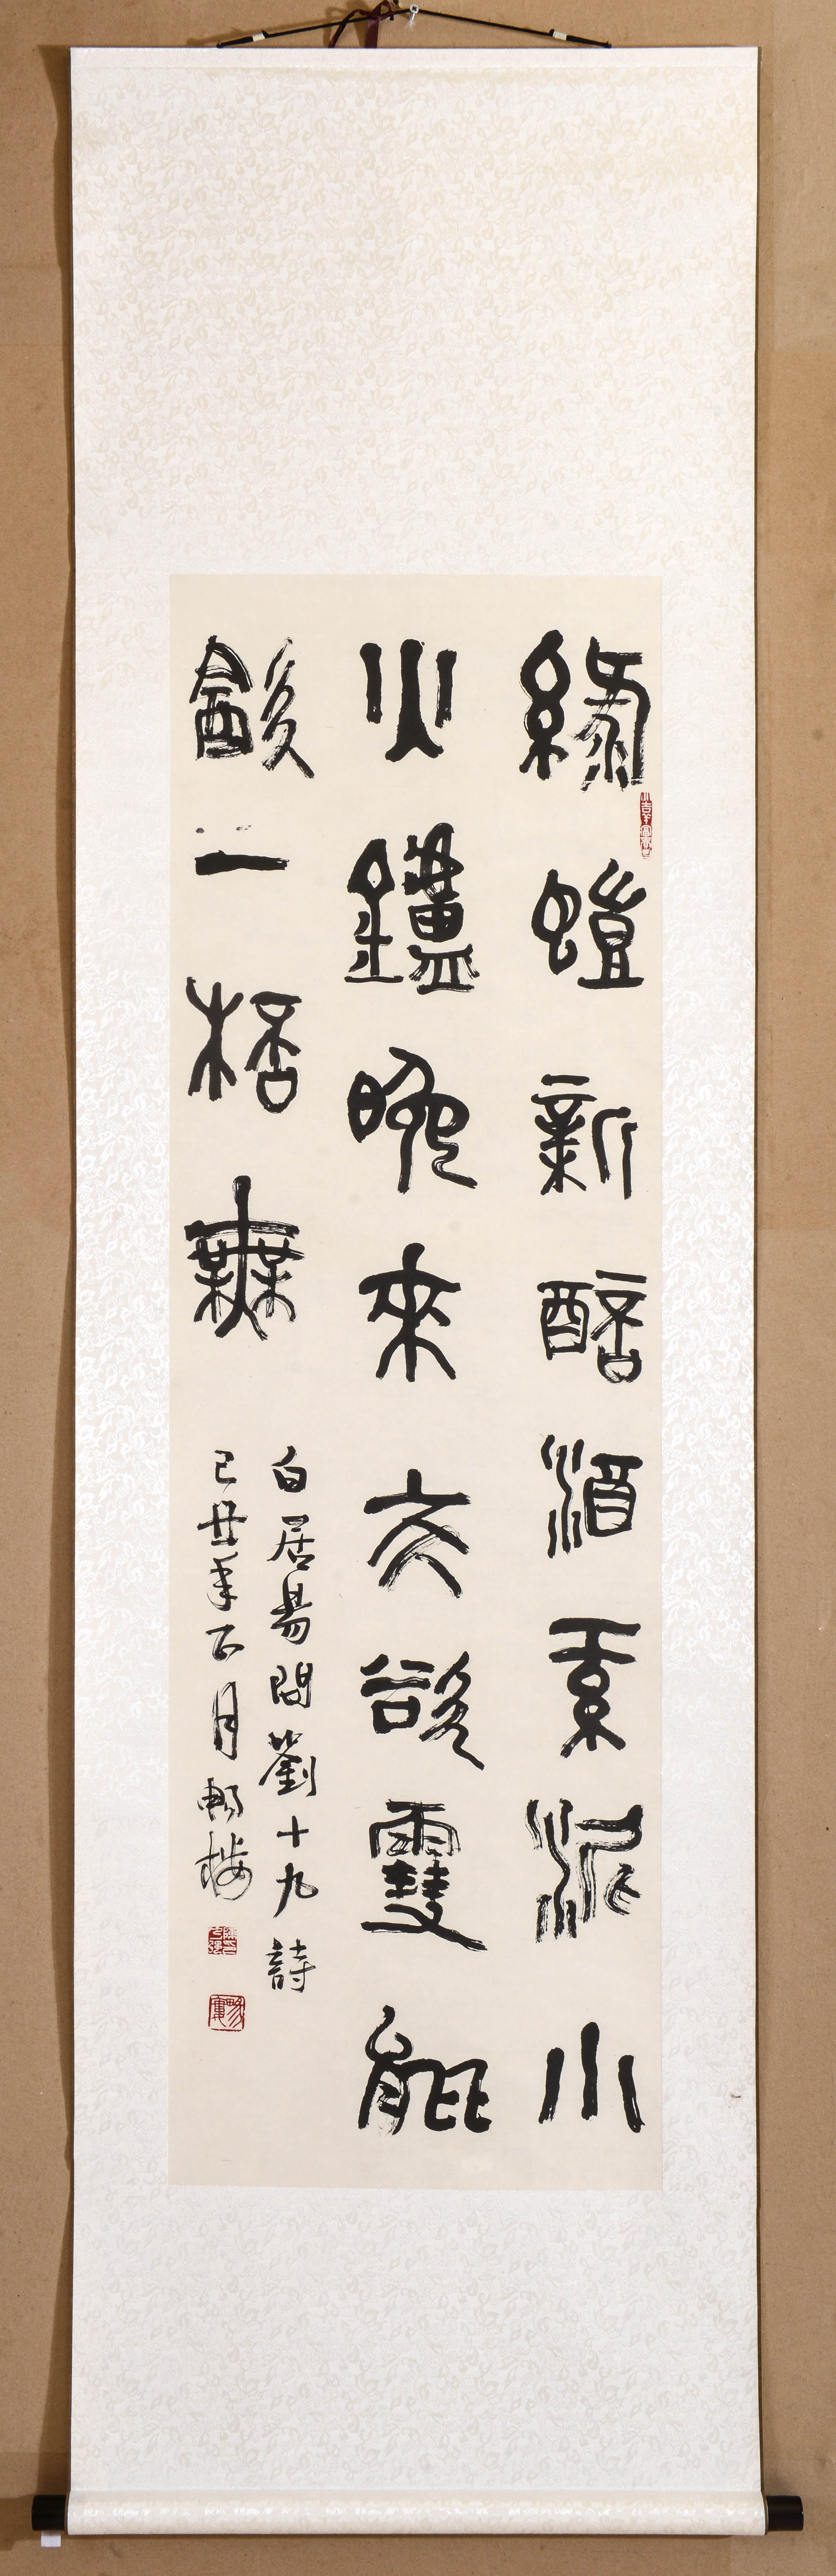 綠螘新醅酒紅泥小
火鑪晚來天欲雪能
㱃一桮無
白居易問劉十九詩
己丑年正月暢樓